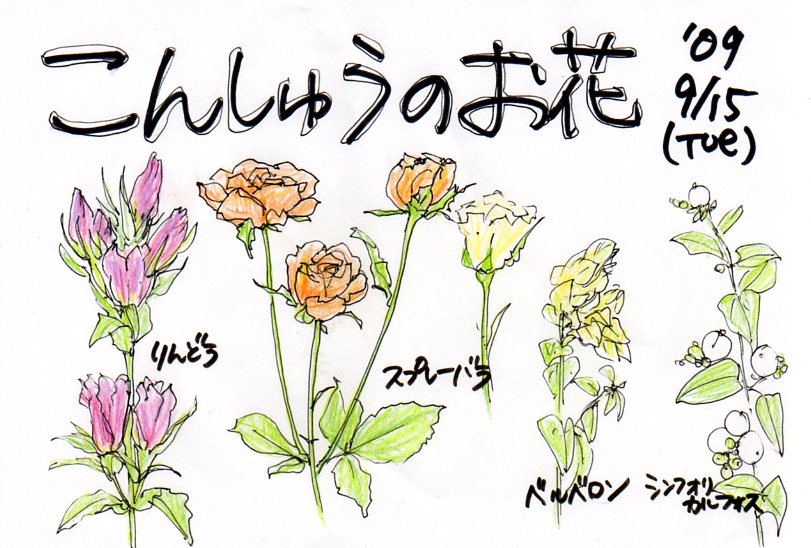 こんしゅうのお花
'09
9/15
(TUE)
りんどう
スプレーバラ
ベルベロン
シンフォリ
カルフォス